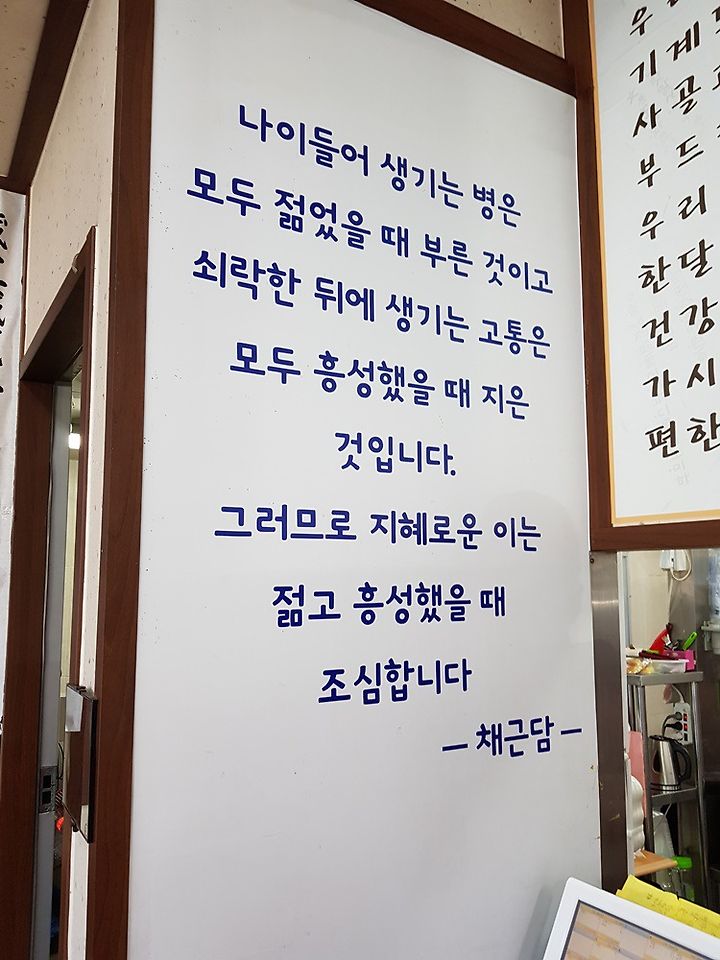 나이들어 생기는 병은
모두 젊었을 때 부른 것이고
쇠락한 뒤에 생기는 고통은
모두 흥성했을 때 지은
것입니다.
그러므로 지혜로운 이는
젊고 흥성했을 때
조심합니다
— 채근담 —
우
기계
사골
부드
우리
한달
건강
가시
편한